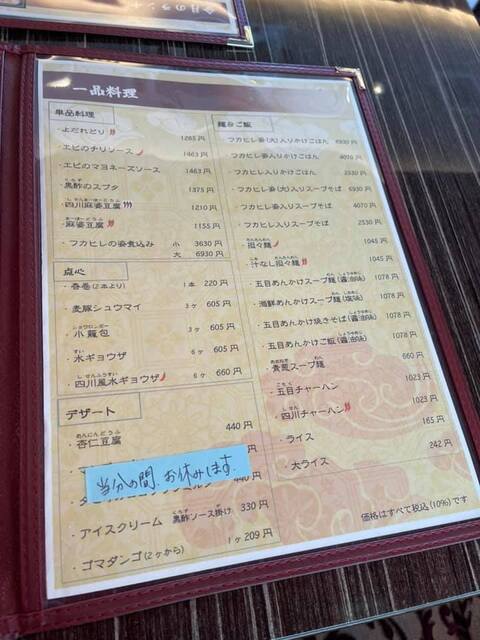 今月のラン
一品料理
単品料理
よだれどり 1265円
エビのチリソース 1463円
エビのマヨネーズソース 1463円
黒酢のスブタ 1375円
四川麻婆豆腐 1210円
麻婆豆腐 1155円
フカヒレの姿煮込み 小 3630円
大 6930円
点心
春巻(2本より) 1本 220円
麦豚シュウマイ 3ヶ 605円
小籠包 3ヶ 605円
水ギョウザ 6ヶ 605円
四川風水ギョウザ 6ヶ 660円
デザート
杏仁豆腐 440円
当分の間、お休みします。
440円
アイスクリーム 黒酢ソース掛け 330円
ゴマダンゴ(2ヶから) 1ヶ 209円
麺&ご飯
フカヒレ姿(大)入りかけごはん 6930円
フカヒレ姿入りかけごはん 4070円
フカヒレ入りかけごはん 2530円
フカヒレ姿(大)入りスープそば 6930円
フカヒレ姿入りスープそば 4070円
フカヒレ入りスープそば 2530円
担々麺 1045円
汁なし担々麺 1045円
五目あんかけスープ麺(醤油味) 1078円
海鮮あんかけスープ麺(塩味) 1078円
五目あんかけ焼きそば(醤油味) 1078円
五目あんかけご飯(醤油味) 1078円
青葱スープ麺 660円
五目チャーハン 1023円
四川チャーハン 1023円
ライス 165円
大ライス 242円
価格はすべて税込(10%)です